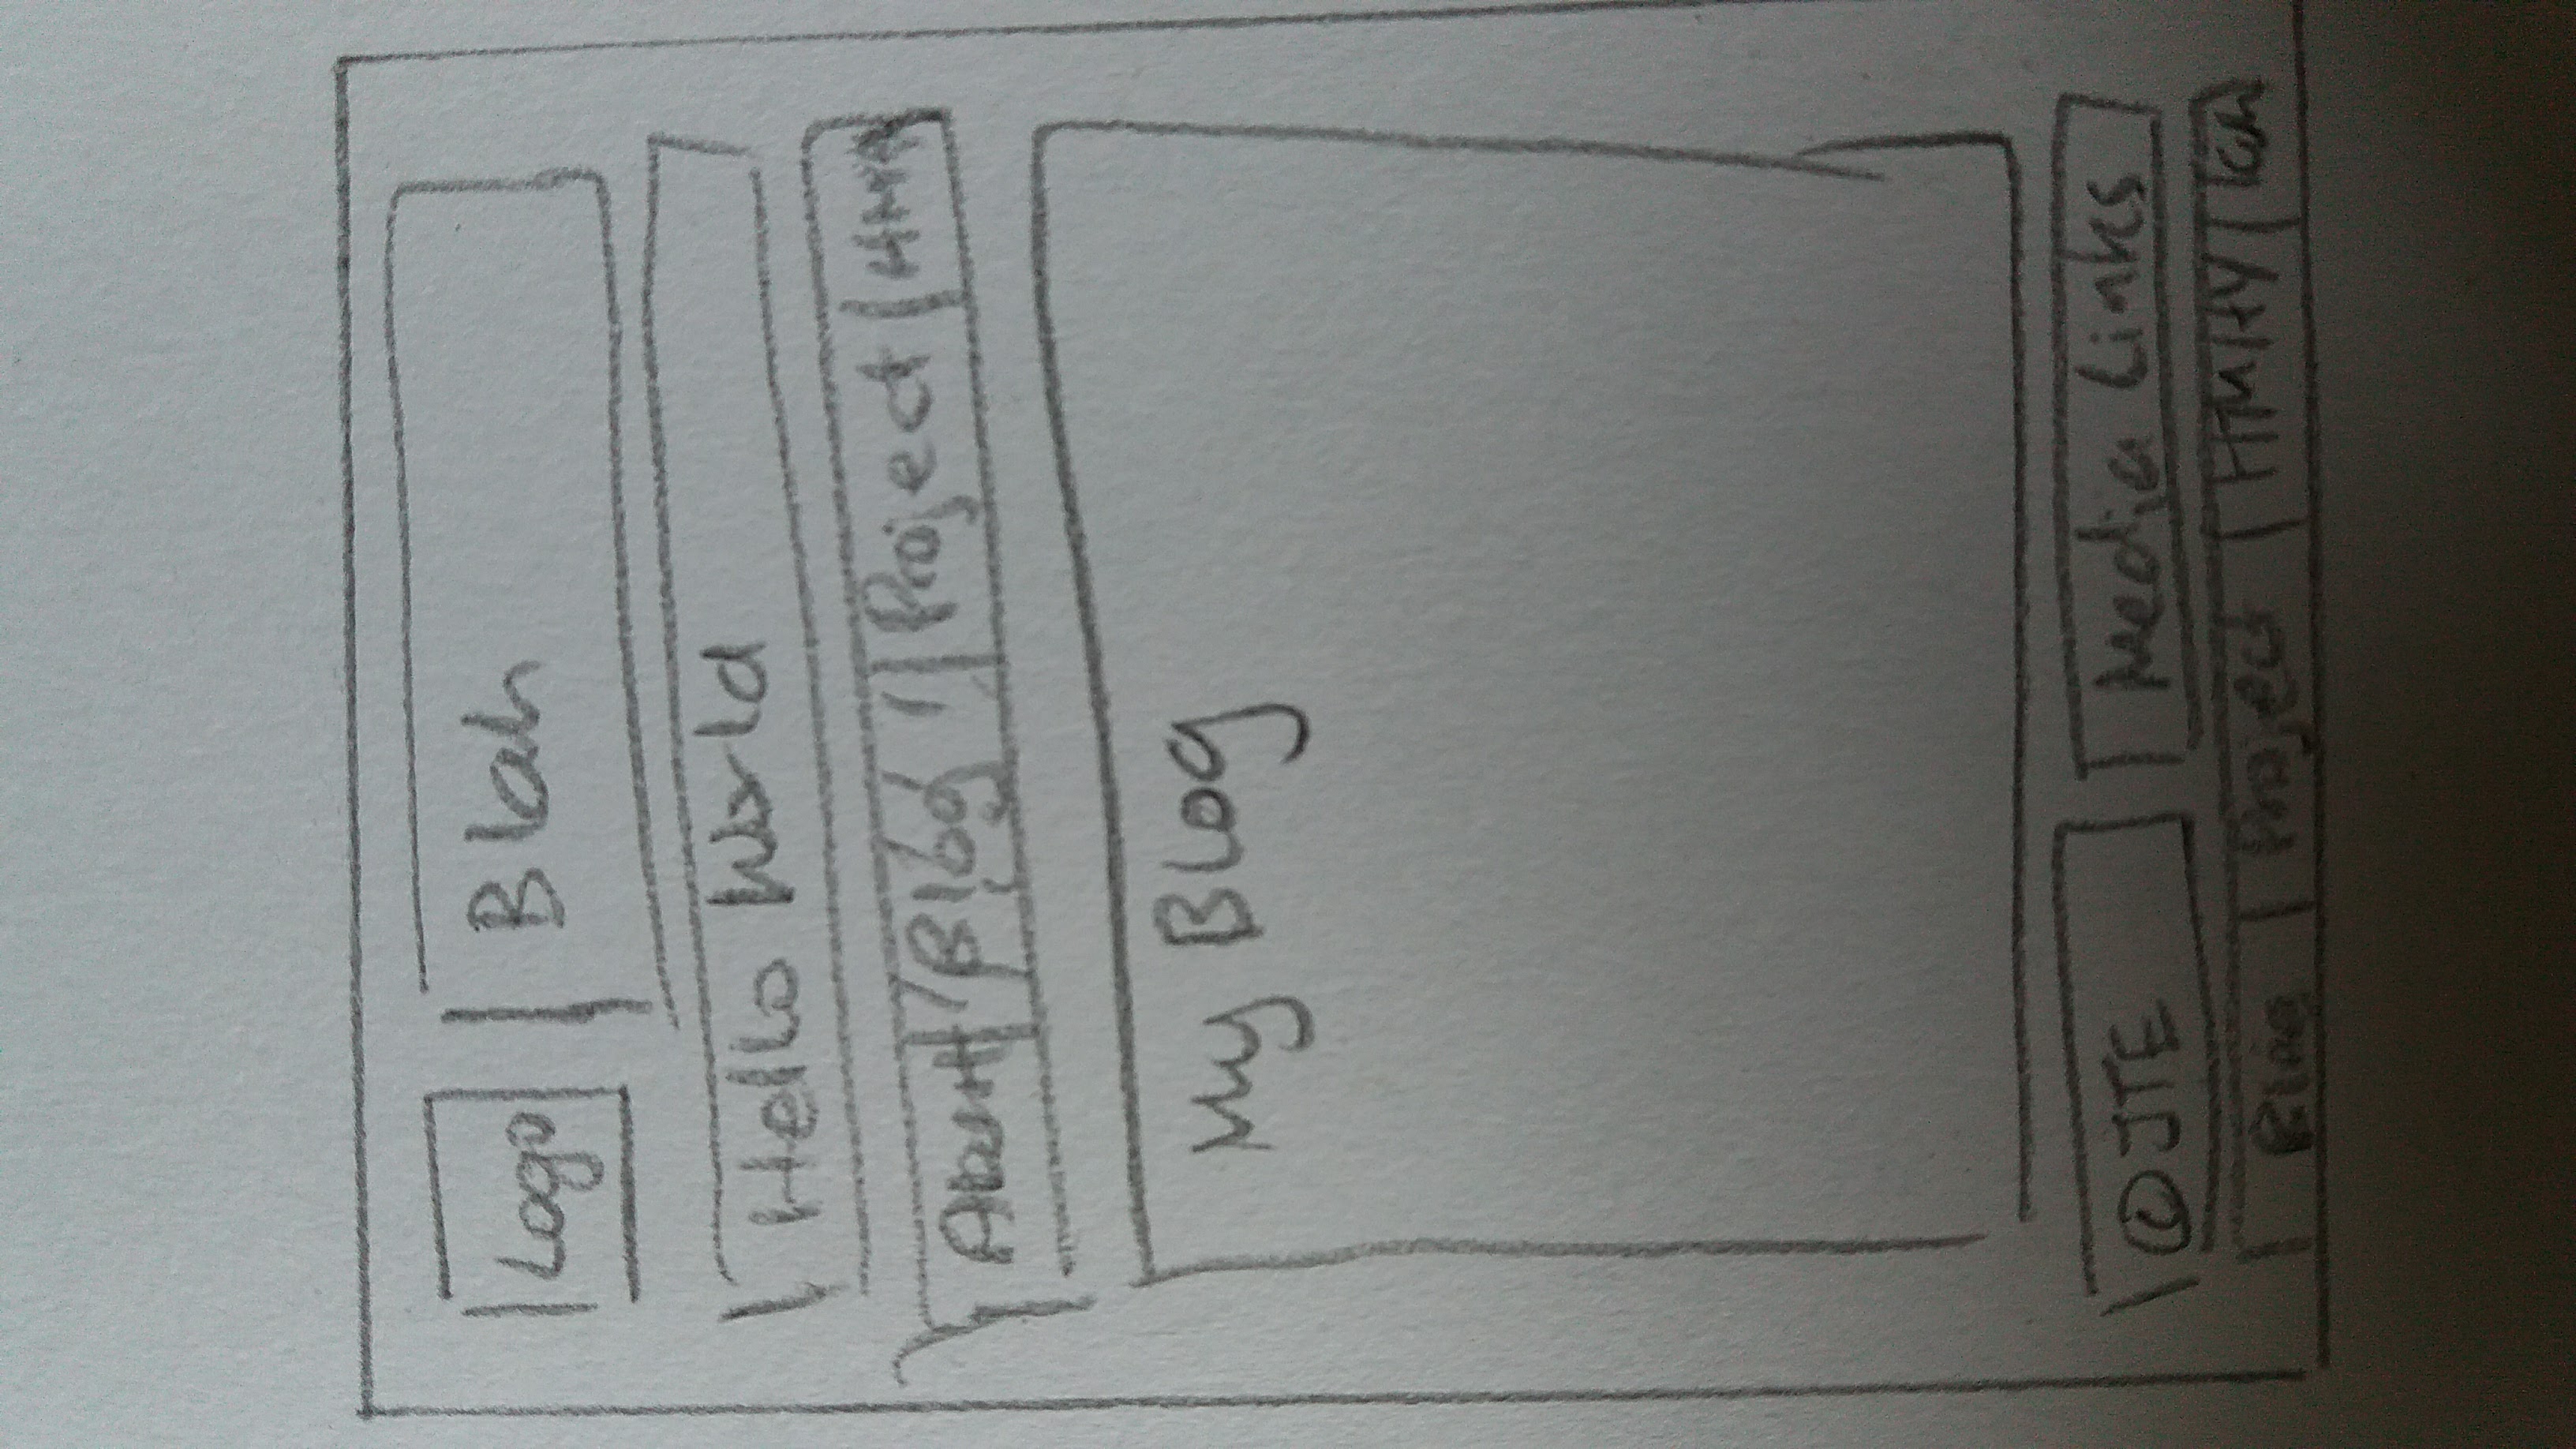 Logo Blah
Hello World
About Blog Project
My Blog
© JTE Media Links
Blog Project